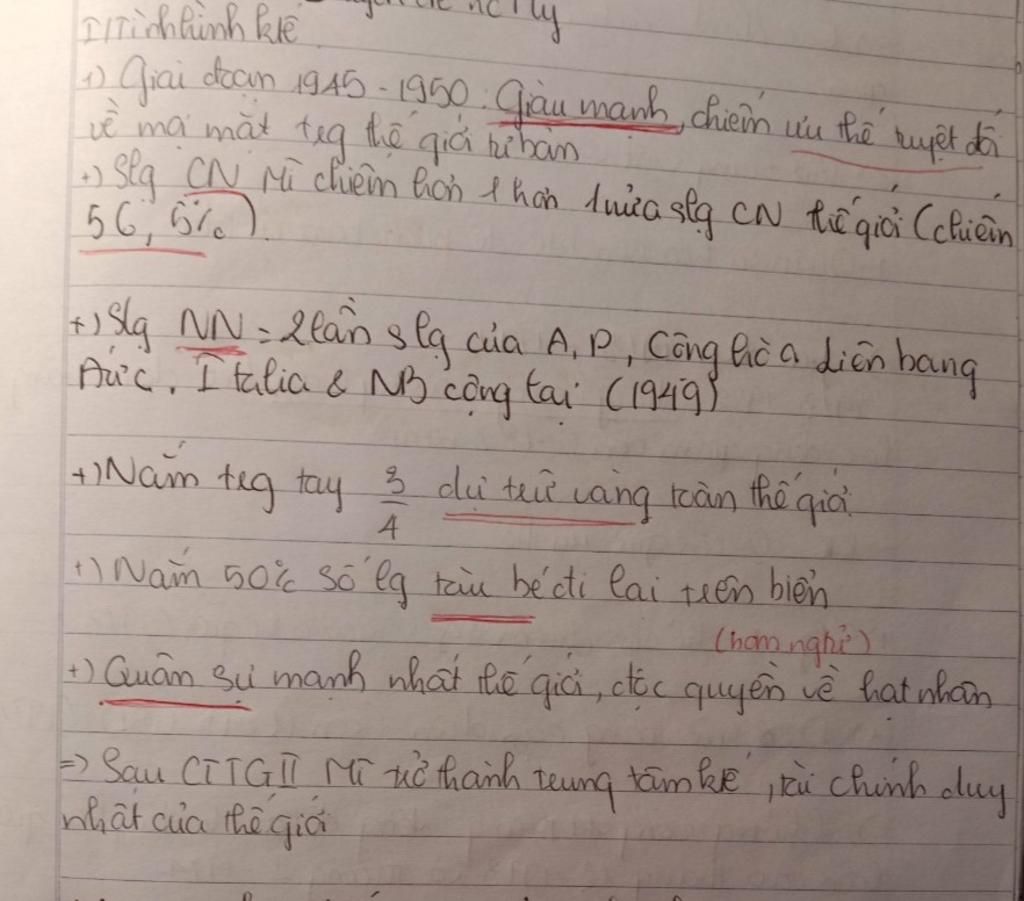 I) Tình hình ktế
1) Giai đoạn 1945 - 1950: Giàu mạnh, chiếm ưu thế tuyệt đối
về mọi mặt trg thế giới tư bản
+) Slg CN Mĩ chiếm hơn 1 hơn 1 nửa slg CN thế giới (chiếm
56,5%)
+) Slg NN = 2 lần slg của A, P, Cộng hòa Liên bang
Đức, Italia & NB cộng lại (1949)
+) Nắm trg tay 3/4 dự trữ vàng toàn thế giới
+) Nắm 50% số lg tàu bè đi lại trên biển
(ham nghỉ)
+) Quân sự mạnh nhất thế giới, độc quyền về hạt nhân
=> Sau CTTGII Mĩ trở thành trung tâm ktế, tài chính duy
nhất của thế giới